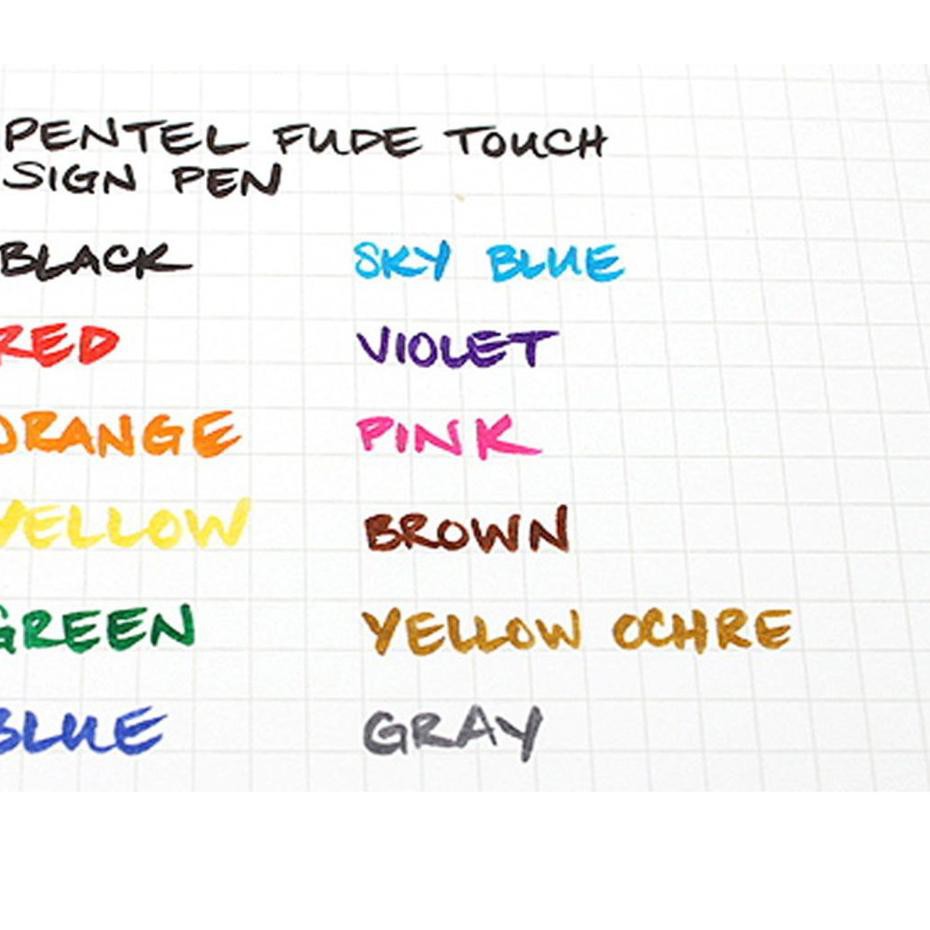 PENTEL FUDE TOUCH
SIGN PEN
BLACK
RED
ORANGE
YELLOW
GREEN
BLUE
SKY BLUE
VIOLET
PINK
BROWN
YELLOW OCHRE
GRAY